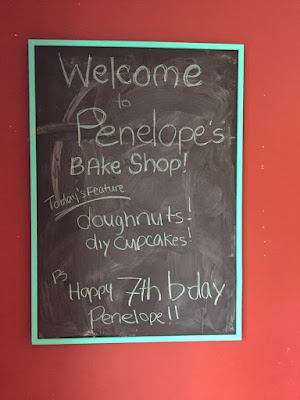 Welcome
to
Penelope's
BAke Shop!
Today's Feature
doughnuts!
diy Cupcakes!
Ps
Happy 7th bday
Penelope!!